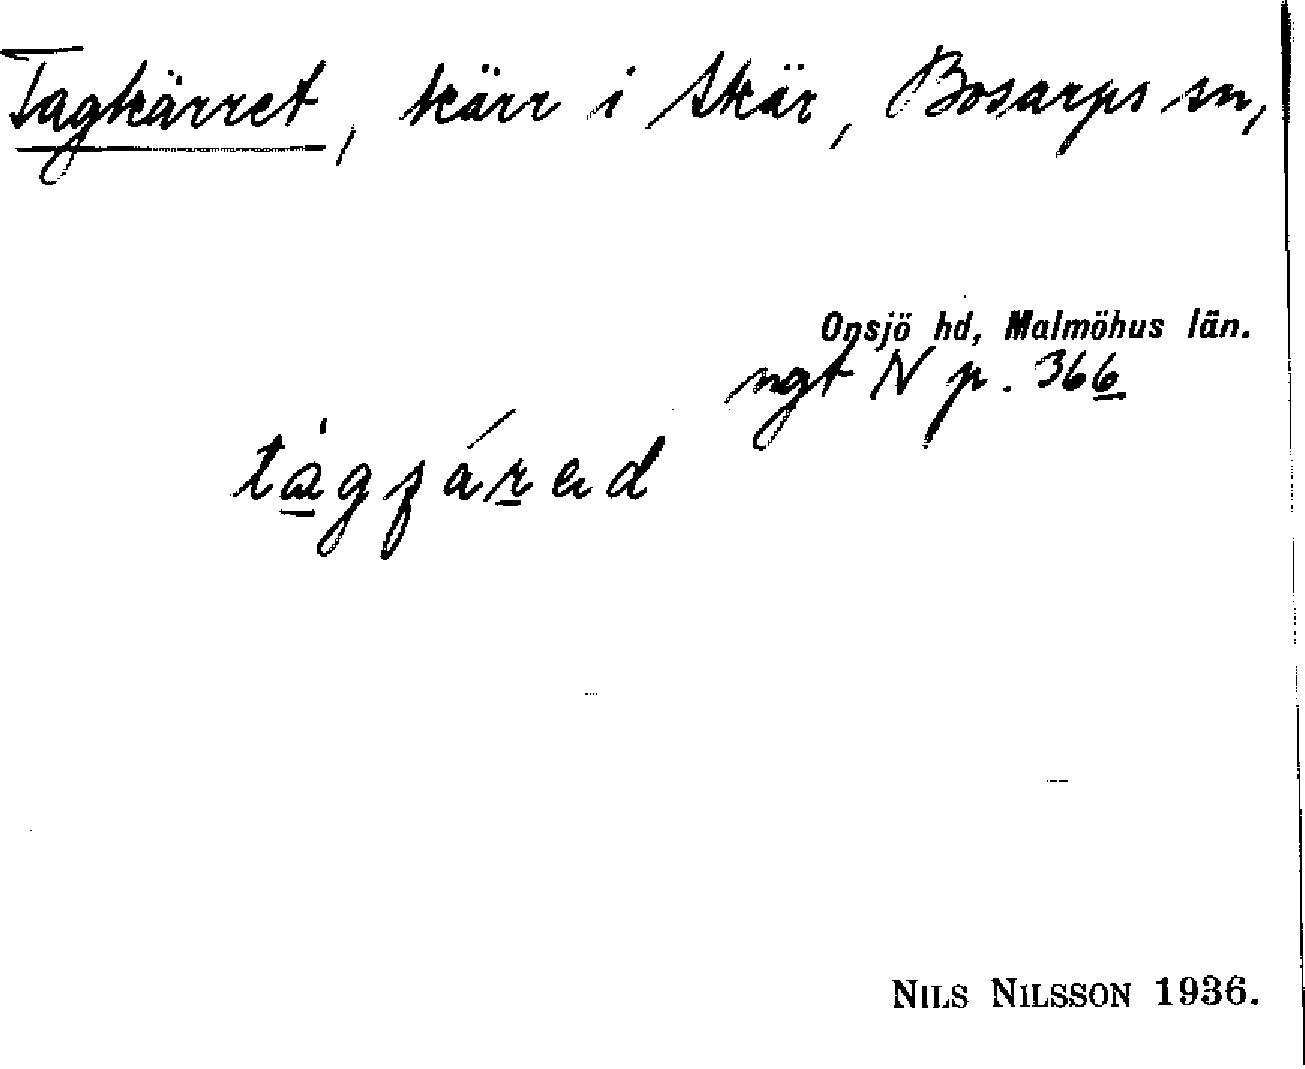 Tagkärret, kärr i Skär, Bosarps sn,
Onsjö hd, Malmöhus län.
ngt N p. 366
NILS NILSSON 1936.